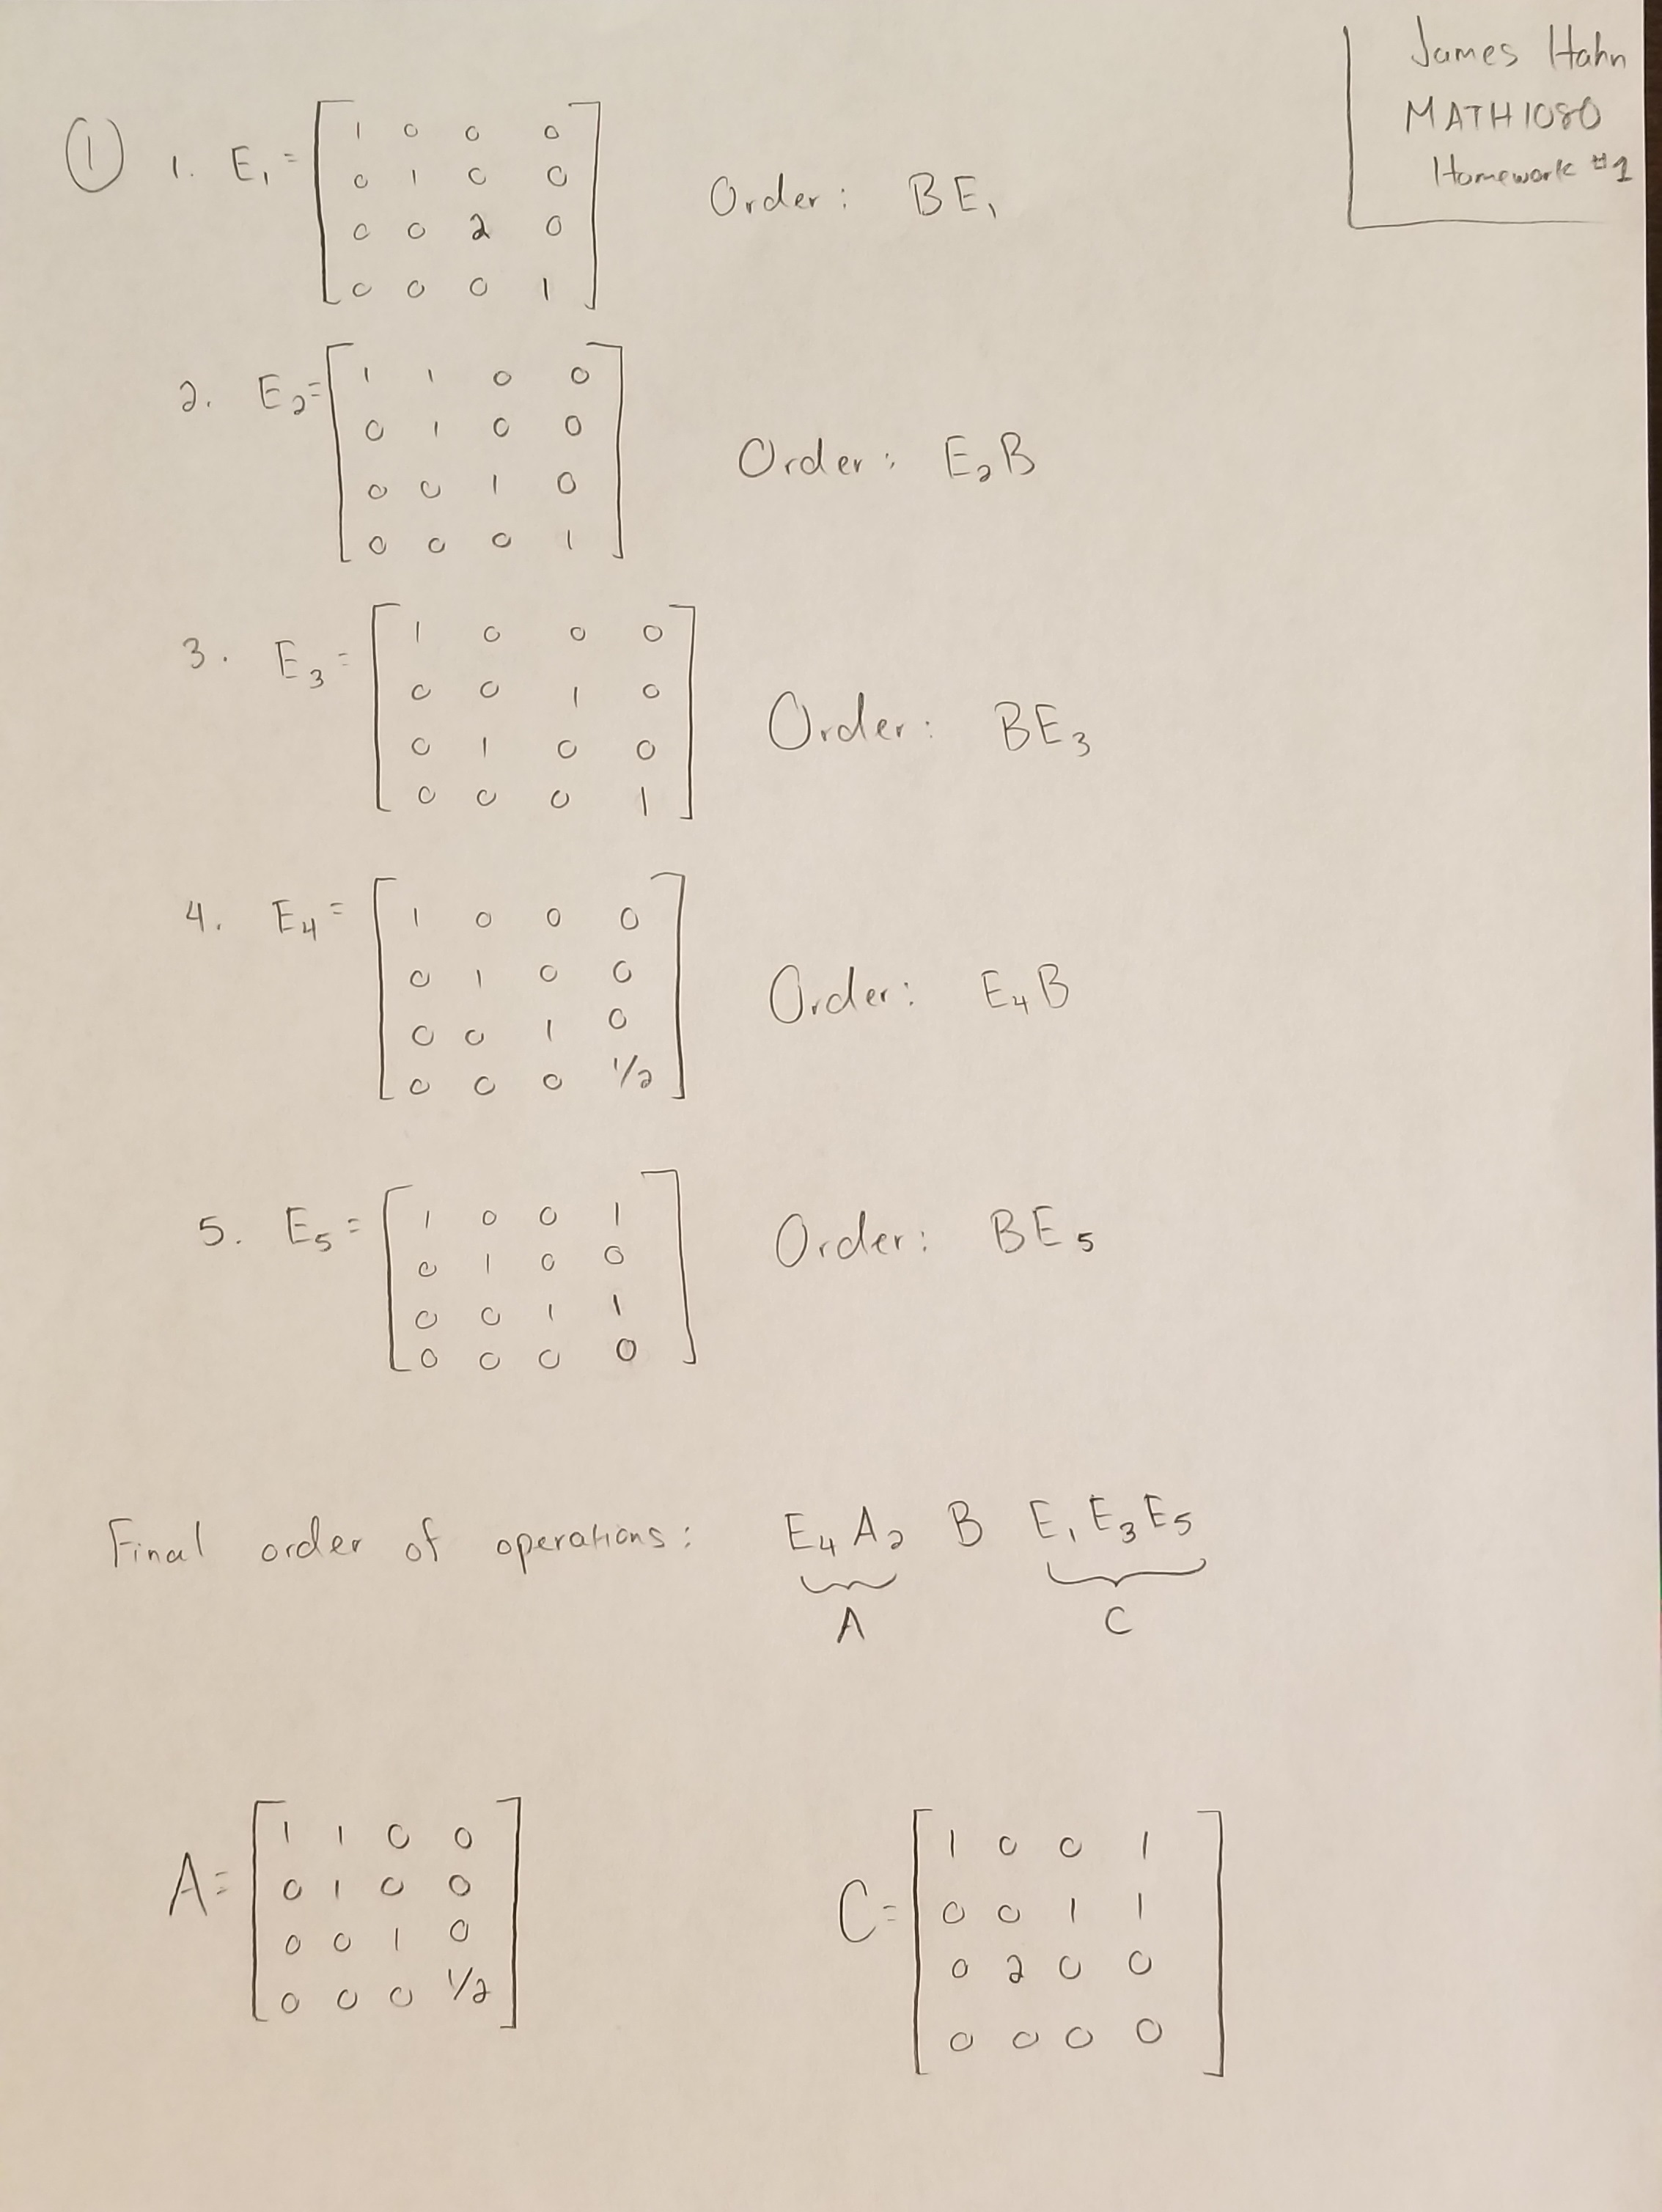 James Hahn
MATH1080
Homework #1
① 1. E₁ = [ 1 0 0 0
0 1 0 0
0 0 2 0
0 0 0 1 ]
Order: BE₁
2. E₂ = [ 1 1 0 0
0 1 0 0
0 0 1 0
0 0 0 1 ]
Order: E₂B
3. E₃ = [ 1 0 0 0
0 0 1 0
0 1 0 0
0 0 0 1 ]
Order: BE₃
4. E₄ = [ 1 0 0 0
0 1 0 0
0 0 1 0
0 0 0 1/2 ]
Order: E₄B
5. E₅ = [ 1 0 0 1
0 1 0 0
0 0 1 1
0 0 0 0 ]
Order: BE₅
Final order of operations: E₄A₂ B E₁E₃E₅
A C
A = [ 1 1 0 0
0 1 0 0
0 0 1 0
0 0 0 1/2 ]
C = [ 1 0 0 1
0 0 1 1
0 2 0 0
0 0 0 0 ]